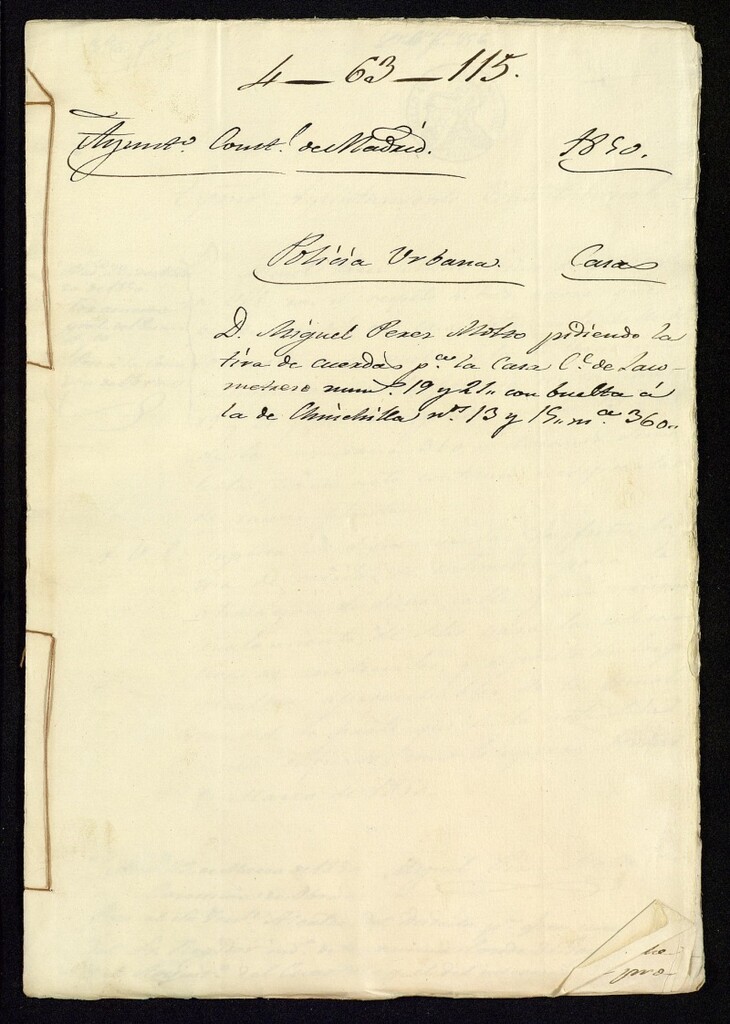 4 — 63 — 115.
Ayunto. Const.l de Madrid. 1850.
Policia Urbana. Casas
D. Miguel Perez Motso pidiendo la
tira de cuerdas p.a la Casa C.e de Jaco-
metrezo num.s 19 y 21 „ con buelta á
la de Chinchilla n.os 13 y 15 „ m.a 360 „